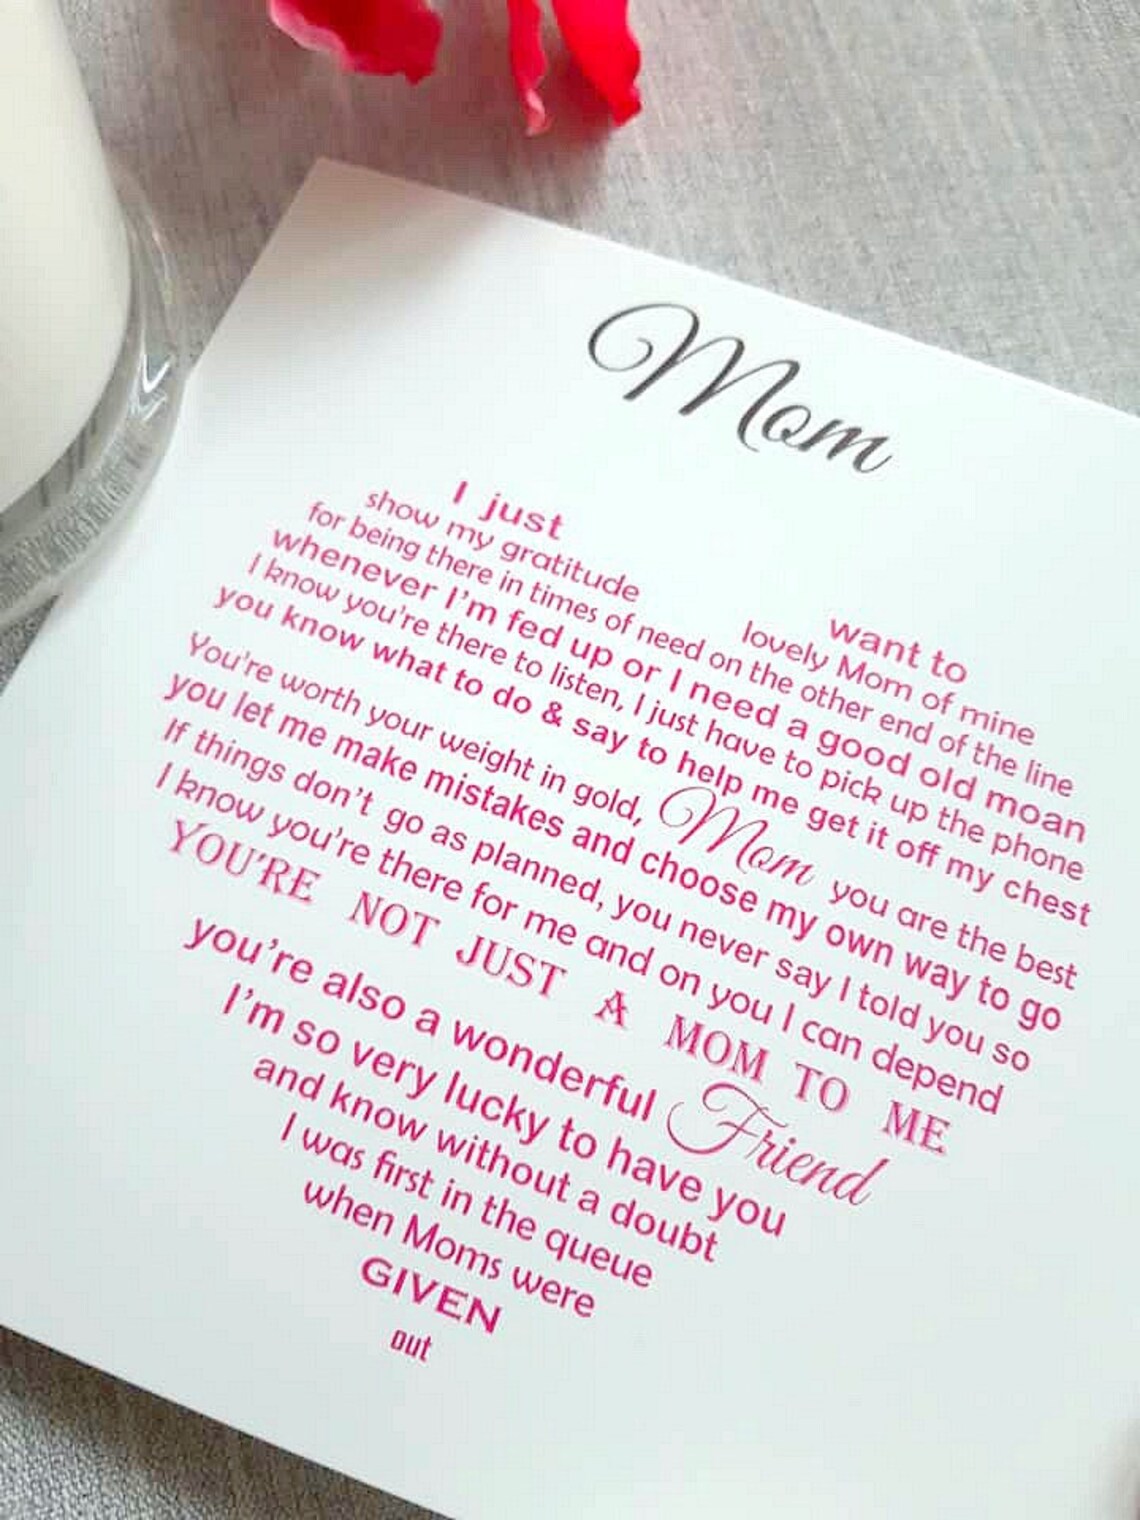 Mom
I just want to
show my gratitude lovely Mom of mine
for being there in times of need on the other end of the line
whenever I'm fed up or I need a good old moan
I know you're there to listen, I just have to pick up the phone
you know what to do & say to help me get it off my chest
You're worth your weight in gold, Mom you are the best
you let me make mistakes and choose my own way to go
If things don't go as planned, you never say I told you so
I know you're there for me and on you I can depend
YOU'RE NOT JUST A MOM TO ME
you're also a wonderful Friend
I'm so very lucky to have you
and know without a doubt
I was first in the queue
when Moms were
GIVEN
out